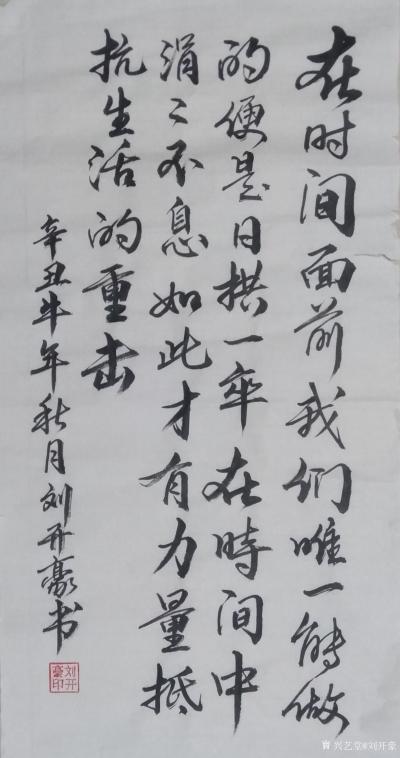 在时间面前我们唯一能做
的便是日拱一卒在時间中
涓〻不息如此才有力量抵
抗生活的重击
辛丑牛年秋月刘开豪书
刘开豪印
兴艺堂@刘开豪